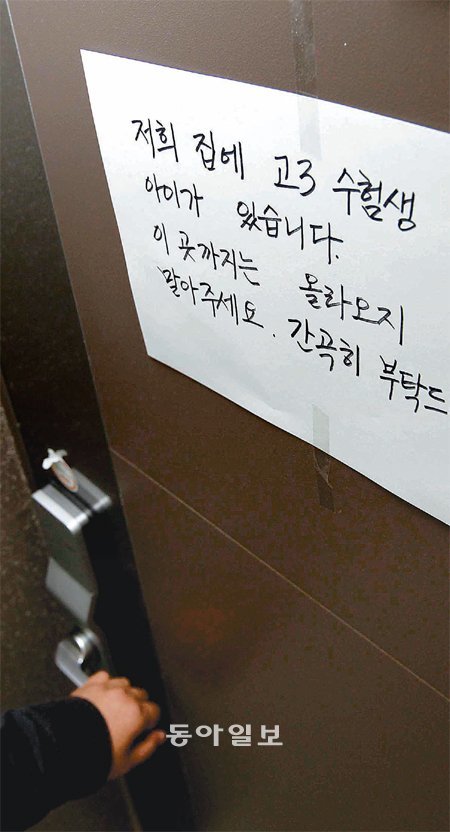 저희 집에 고3 수험생
아이가 있습니다.
이 곳까지는 올라오지
말아주세요. 간곡히 부탁드
동아일보